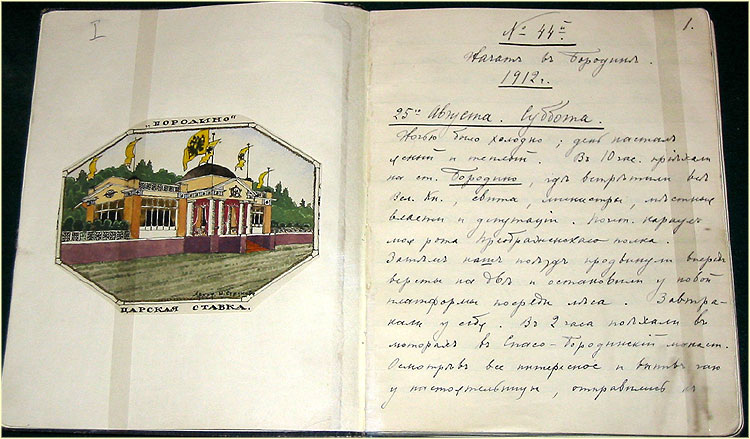 I
„БОРОДИНО"
ЦАРСКАЯ СТАВКА.
1.
№ 44й
Начатъ въ Бородинѣ.
1912 г.
25го Августа. Суббота.
Ночью было холодно; день насталъ
ясный и теплый. Въ 10 час. пріѣхали
на ст. Бородино, гдѣ встрѣтили всѣ
Вел. Кн., свита, министры, мѣстныя
власти и депутаціи. Почт. караулъ
моя рота Преображенскаго полка.
Затѣмъ нашъ поѣздъ продвинули впередъ
версты на двѣ и остановили у новой
платформы посреди лѣса. Завтра-
кали у себя. Въ 2 часа поѣхали въ
моторахъ въ Спасо-Бородинскій монаст.
Осмотрѣвъ все интересное и выпивъ чаю
у настоятельницы, отправились къ